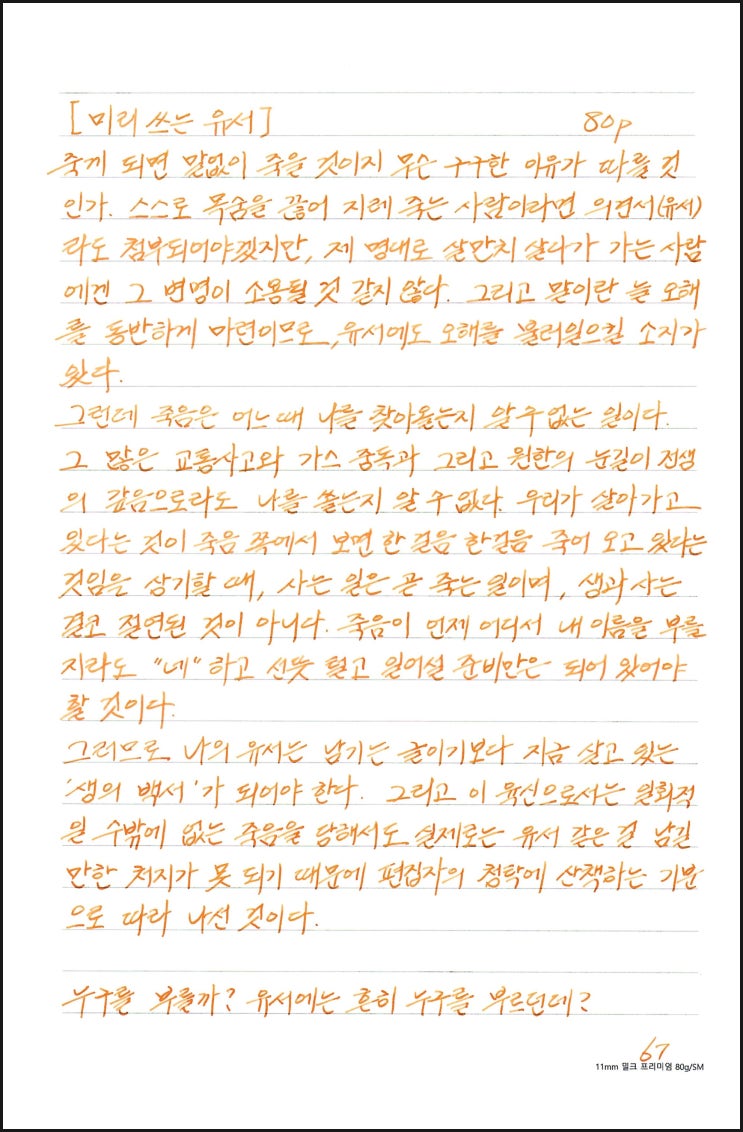 [미리 쓰는 유서] 80p
죽게 되면 말없이 죽을 것이지 무슨 구구한 이유가 따를 것
인가. 스스로 목숨을 끊어 지레 죽는 사람이라면 의견서(유서)
라도 첨부되어야겠지만, 제 명대로 살만치 살다가 가는 사람
에겐 그 변명이 소용될 것 같지 않다. 그리고 말이란 늘 오해
를 동반하게 마련이므로, 유서에도 오해를 불러일으킬 소지가
있다.
그런데 죽음은 어느 때 나를 찾아올는지 알 수 없는 일이다.
그 많은 교통사고와 가스 중독과 그리고 원한의 눈길이 전생
의 갚음으로라도 나를 쏠는지 알 수 없다. 우리가 살아가고
있다는 것이 죽음 쪽에서 보면 한 걸음 한걸음 죽어 오고 있다는
것임을 상기할 때, 사는 일은 곧 죽는 일이며, 생과 사는
결코 절연된 것이 아니다. 죽음이 언제 어디서 내 이름을 부를
지라도 "네" 하고 선뜻 털고 일어설 준비만은 되어 있어야
할 것이다.
그러므로 나의 유서는 남기는 글이기보다 지금 살고 있는
'생의 백서'가 되어야 한다. 그리고 이 육신으로서는 일회적
일 수밖에 없는 죽음을 당해서도 실제로는 유서 같은 걸 남길
만한 처지가 못 되기 때문에 편집자의 청탁에 산책하는 기분
으로 따라 나선 것이다.
누구를 부를까? 유서에는 흔히 누구를 부르던데?
67
11mm 밀크 프리미엄 80g/SM